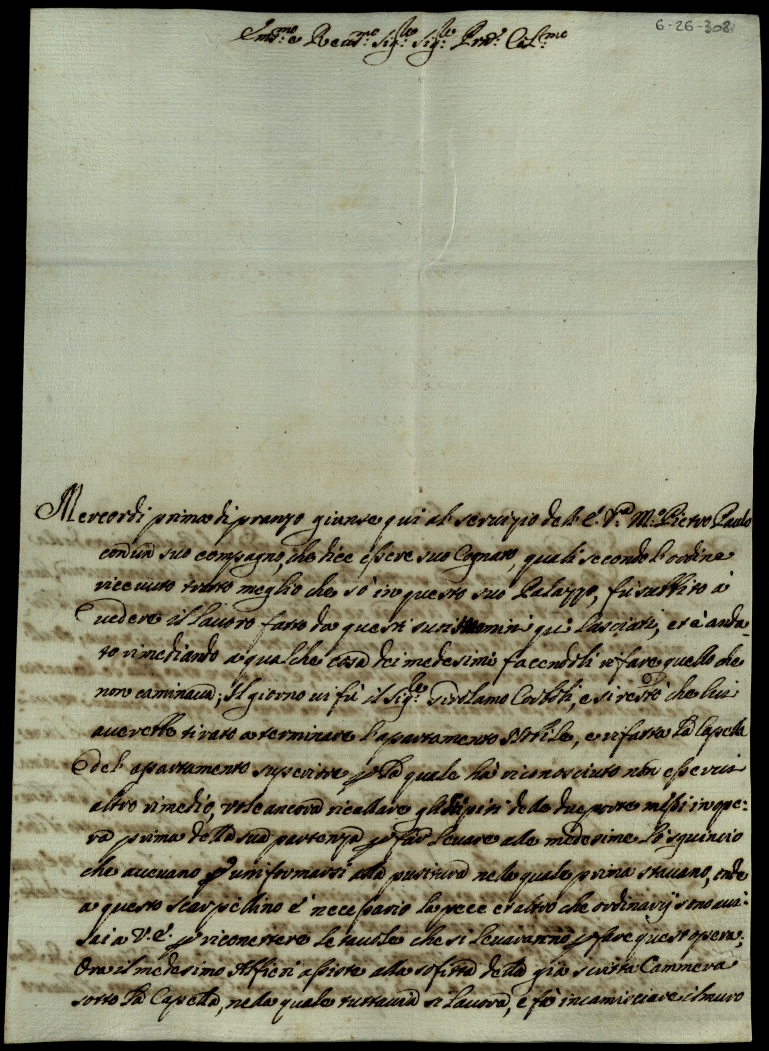 6-26-308
Em.mo e Rev.mo Sig.re Sig.re Prõn Col.mo
Mercordì prima di pranzo giunse qui al servizio dell' E. V.ra M.o Pietro Paulo
con un suo compagno, che dice essere suo Cognato, quali secondo l'ordine
ricevuto tratto meglio che sò in questo suo Palazzo, fù subbito à
vedere il lavoro fatto da questi suoi uomini quì lasciati, et è anda-
to rimediando a qualche cosa dei medesimi facendoli rifare quello che
non caminava; Il giorno vi fù il Sig.re Girolamo Costoli, e si restò che lui
averebbe tirato a terminare l'apartamento Nobile, e rifatta la Capella
del apartamento superiore p la quale hà riconosciuto non esservi
altro rimedio, vole ancora ricallare gli stipiti delle due porte messi in ope-
ra prima della sua partenza p far levare alle medesime lo sguincio
che avevano p uniformarsi alla positura nella quale prima stavano, onde
a questo scarpellino è necessario la pece et altro che ordinarij sono avi-
sai a V. E. p riconettere le tavole che si levaranno p fare quest'opera;
Ora il medesimo Alfieri assiste alla soffitta della già scritta Cammera
sotto la Capella, nella quale tuttavia si lavora, e fà incamisciare il muro